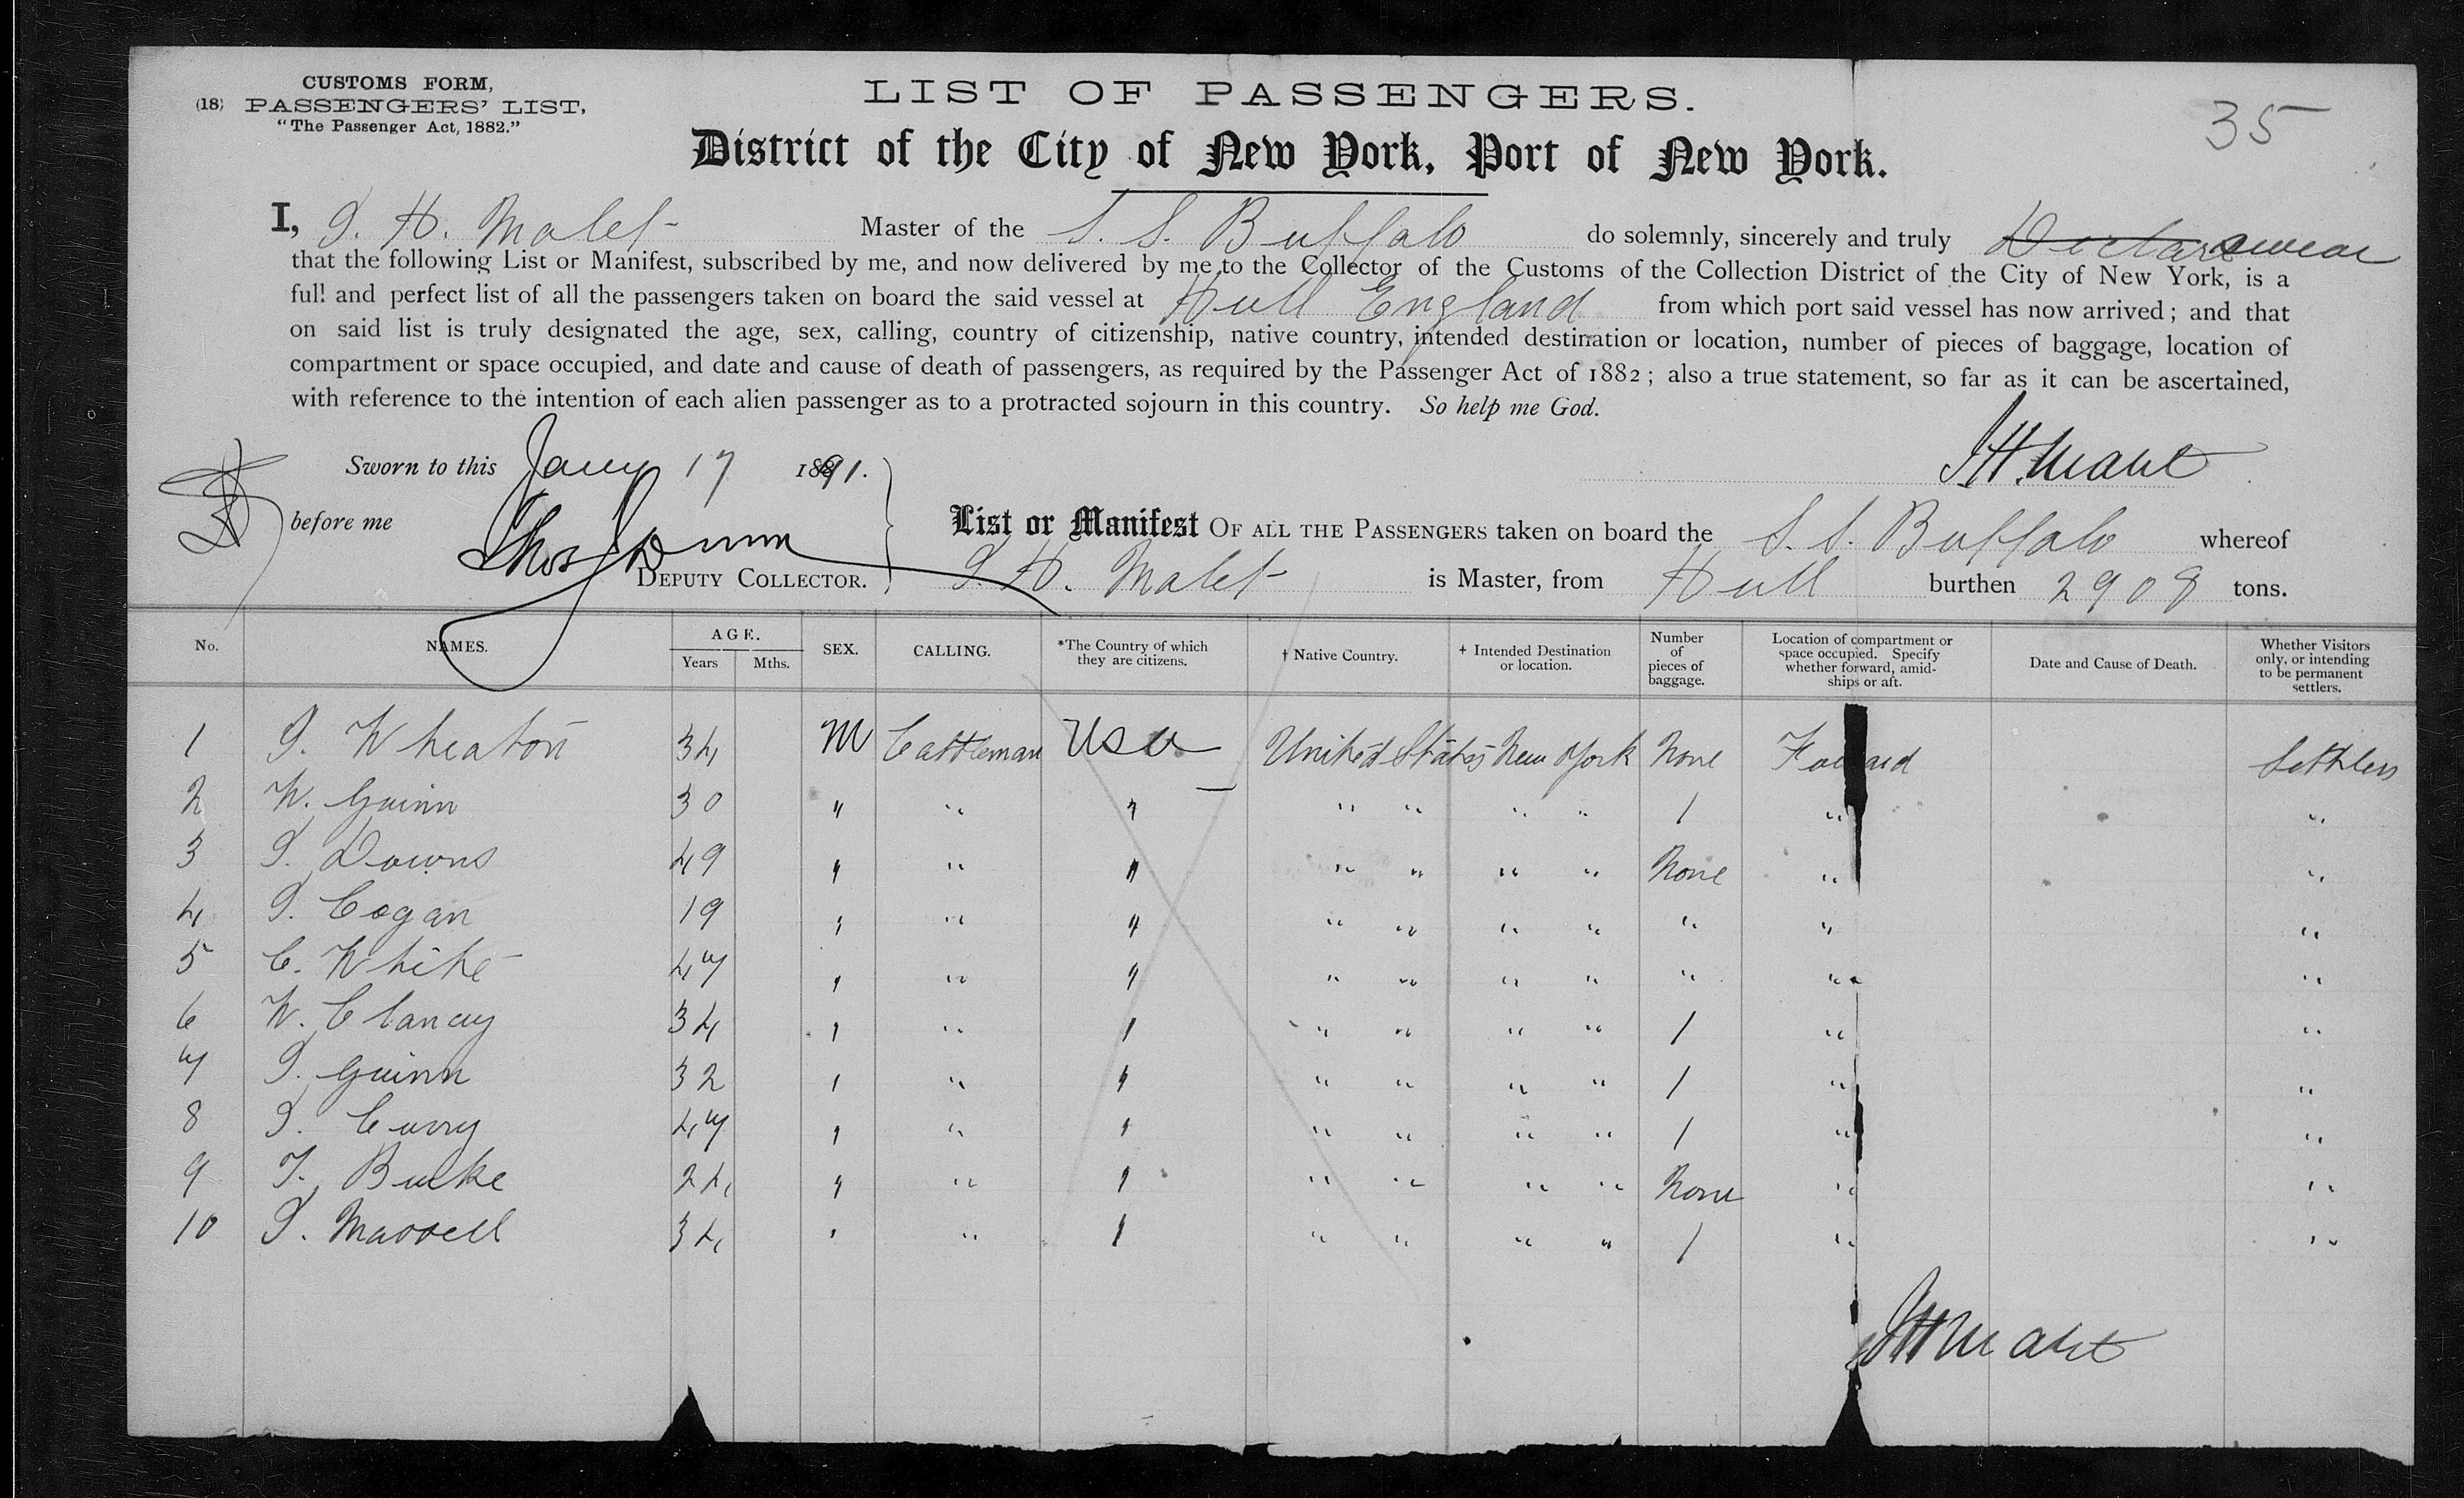 CUSTOMS FORM,
(18) PASSENGERS' LIST,
"The Passenger Act, 1882."
LIST OF PASSENGERS.
35
District of the City of New York, Port of New York.
I, J. H. Malet Master of the S. S. Buffalo do solemnly, sincerely and truly Declare swear
that the following List or Manifest, subscribed by me, and now delivered by me to the Collector of the Customs of the Collection District of the City of New York, is a
full and perfect list of all the passengers taken on board the said vessel at Hull England from which port said vessel has now arrived; and that
on said list is truly designated the age, sex, calling, country of citizenship, native country, intended destination or location, number of pieces of baggage, location of
compartment or space occupied, and date and cause of death of passengers, as required by the Passenger Act of 1882; also a true statement, so far as it can be ascertained,
with reference to the intention of each alien passenger as to a protracted sojourn in this country. So help me God.
Sworn to this Jany 17 1891. J H Malet
before me Thos Dunn
List or Manifest OF ALL THE PASSENGERS taken on board the S. S. Buffalo whereof
DEPUTY COLLECTOR. J. H. Malet is Master, from Hull burthen 2908 tons.
No. NAMES. AGE. Years Mths. SEX. CALLING. *The Country of which they are citizens. † Native Country. ‡ Intended Destination or location. Number of pieces of baggage. Location of compartment or space occupied. Specify whether forward, amidships or aft. Date and Cause of Death. Whether Visitors only, or intending to be permanent settlers.
1 J. Wheaton 34 M Cattleman USA United States New York None Forward Settlers
2 W. Guinn 30 " " " " " " " 1 " "
3 J. Downs 49 " " " " " " " None " "
4 J. Cogan 19 " " " " " " " " " "
5 C. White 47 " " " " " " " " " "
6 W. Clancy 34 " " " " " " " 1 " "
7 J. Guinn 32 " " " " " " " 1 " "
8 J. Curry 47 " " " " " " " 1 " "
9 T. Burke 24 " " " " " " " None " "
10 J. Massell 34 " " " " " " " 1 " "
J H Malet